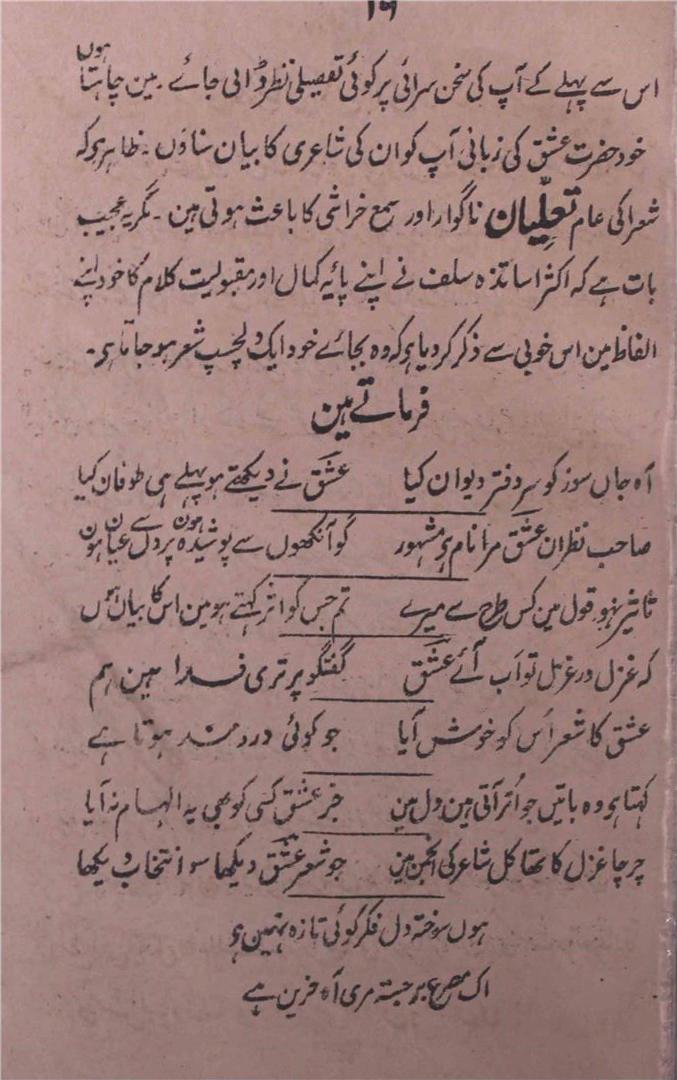 ۱۶
اس سے پہلے کے آپ کی سخن سرائی پر کوئی تفصیلی نظر ڈالی جائے۔ مین چاہتا ہوں
خود حضرت عشق کی زبانی آپ کو ان کی شاعری کا بیان سناؤں۔ ظاہر ہو کہ
شعرا کی عام تعلّیان ناگوار اور سمع خراشی کا باعث ہوتی ہین۔ مگر یہ عجیب
بات ہے کہ اکثر اساتذہ سلف نے اپنے پایہ کمال اور مقبولیت کلام کا خود اپنے
الفاظ مین اس خوبی سے ذکر کر دیا ہو کہ وہ بجائے خود ایک دلچسپ شعر ہو جاتا ہو۔
فرماتے ہین
آہ جاں سوز کو سر دفتر دیوان کیا عشق نے دیکھتے ہو پہلے ہی طوفان کیا
صاحب نظران عشق مرا نام ہو مشہور گو آنکھوں سے پوشیدہ ہون پر دل سے عیان ہون
تاثیر نہو قول مین کس طرح سے میرے تم جس کو اثر کہتے ہو مین اس کا بیان ہوں
کہ غزل در غزل تو اب آئے عشق گفتگو پر تری فدا ہین ہم
عشق کا شعر اُس کو خوش آیا جو کوئی دردمند ہوتا ہے
کہتا ہو وہ باتیں جو اُتر آتی ہین دل مین جز عشق کسی کو بھی یہ الہام نہ آیا
چرچا غزل کا تھا کل شاعر کی انجمن مین جو شعر عشق دیکھا سو انتخاب دیکھا
ہوں سوختہ دل فکر کوئی تازہ نہین ہو
اک مصرع برجستہ مری آہ حزین ہے